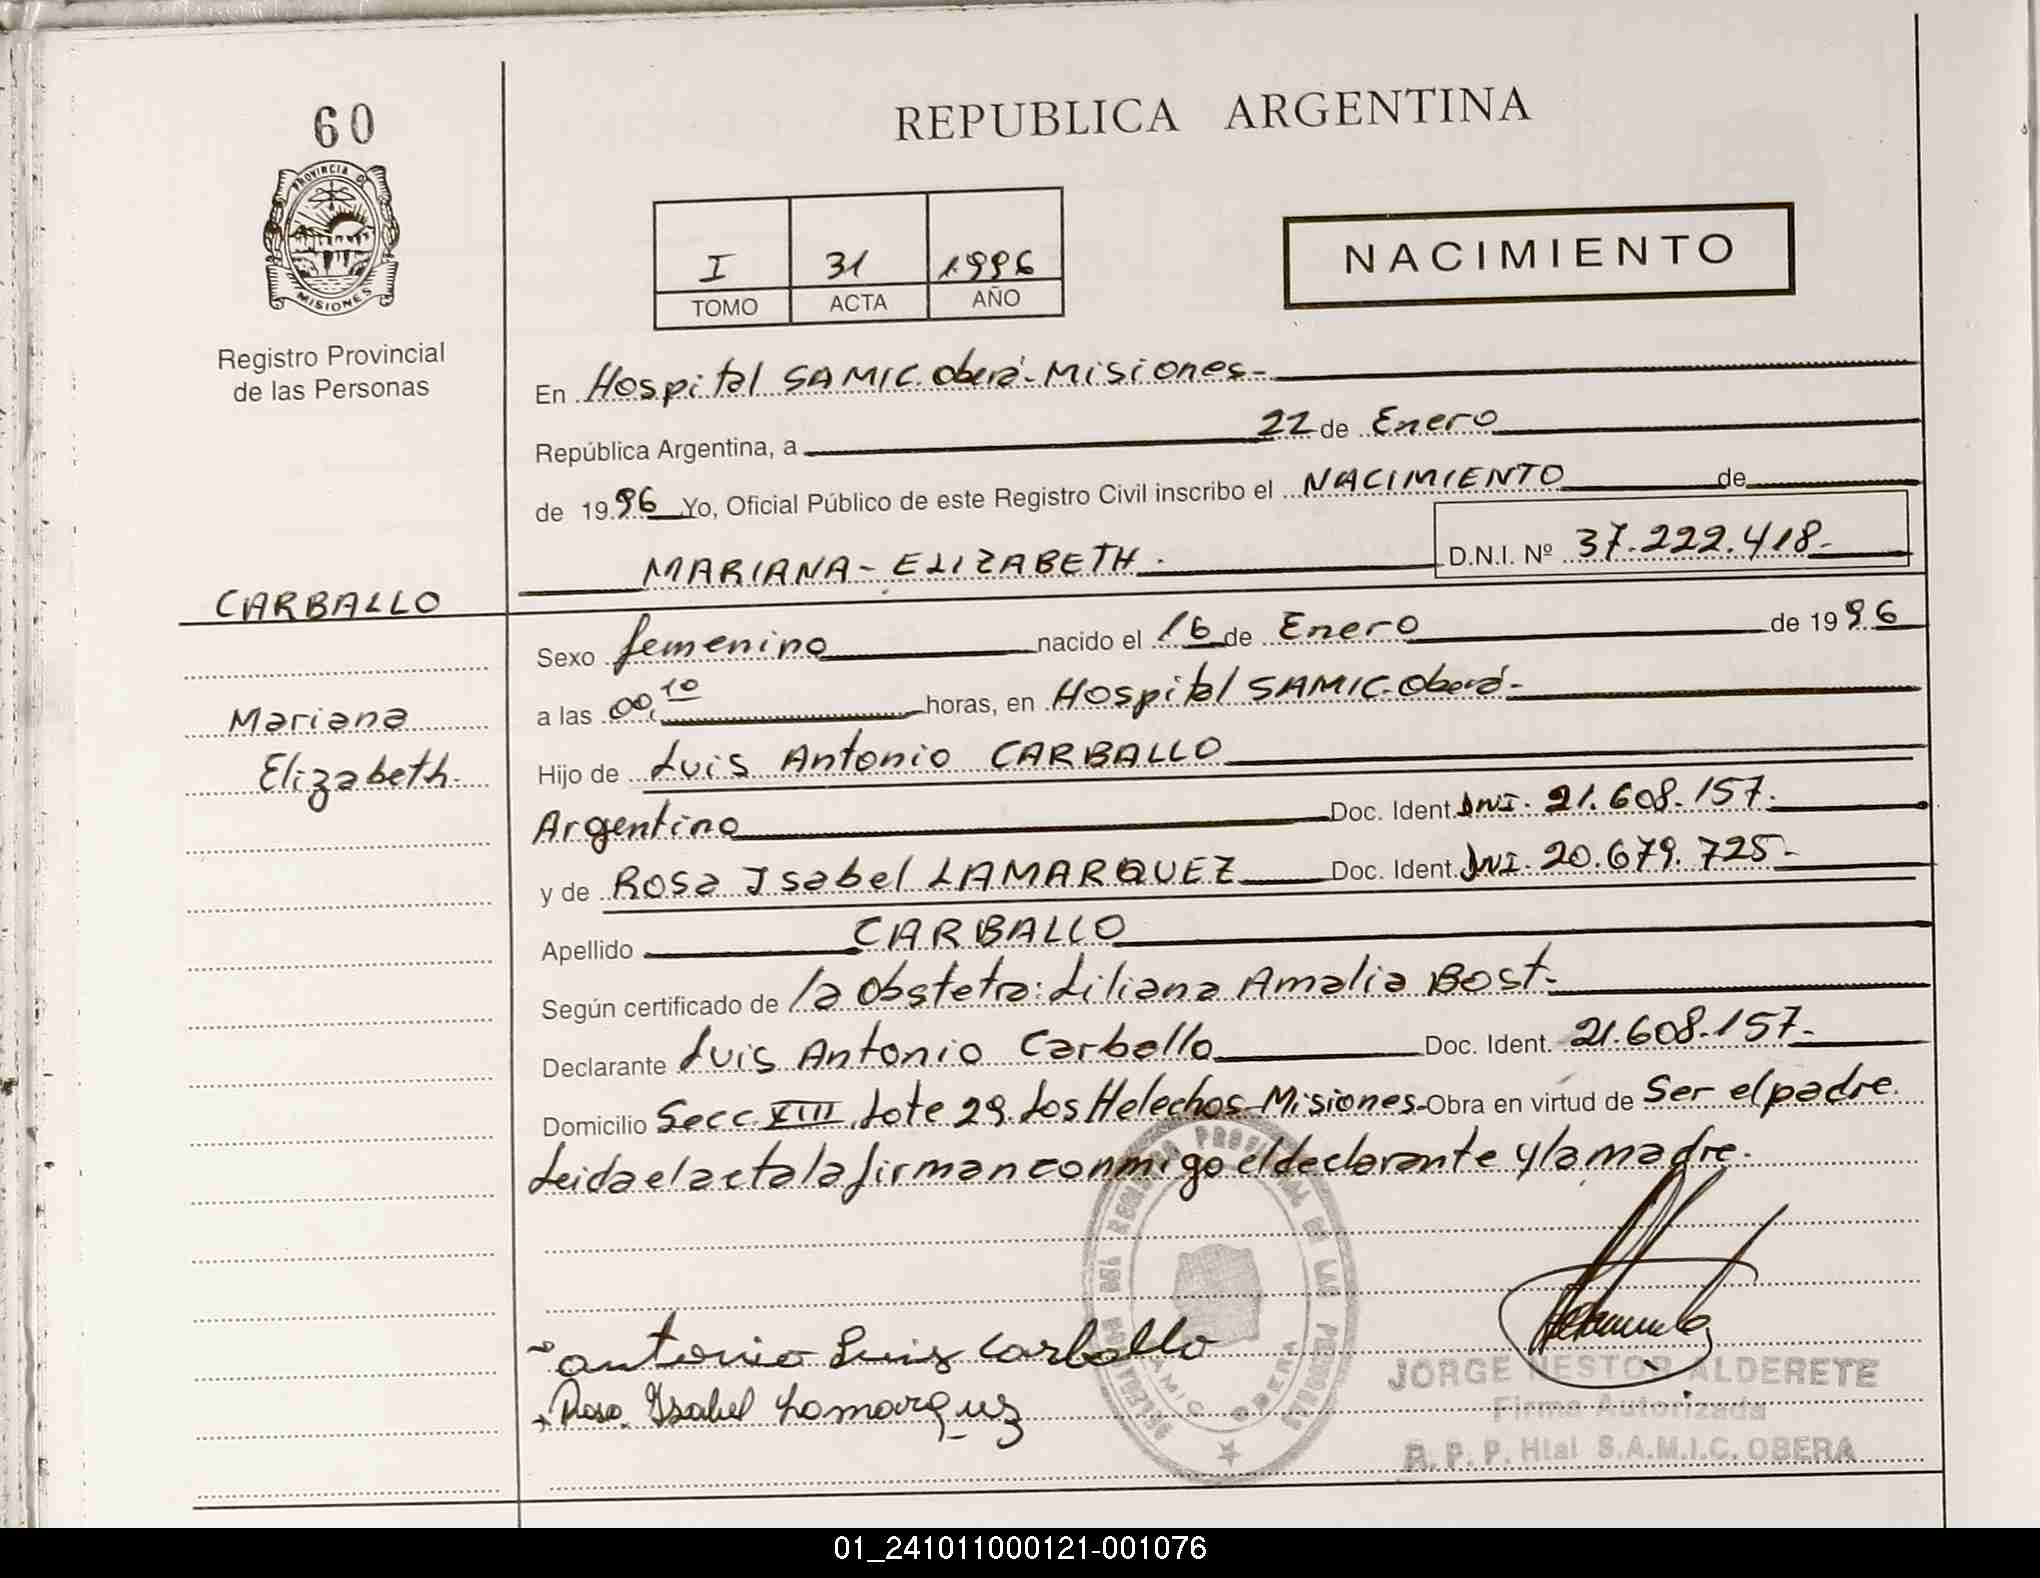 60
PROVINCIA DE
MISIONES
Registro Provincial
de las Personas
REPUBLICA ARGENTINA
I 31 1996
TOMO ACTA AÑO
NACIMIENTO
En Hospital SAMIC. Oberá-Misiones-
República Argentina, a 22 de Enero
de 1996 Yo, Oficial Público de este Registro Civil inscribo el NACIMIENTO de
MARIANA-ELIZABETH. D.N.I. Nº 37.222.418-
CARBALLO
Mariana
Elizabeth-
Sexo femenino nacido el 16 de Enero de 1996
a las 00,10 horas, en Hospital SAMIC-Oberá-
Hijo de Luis Antonio CARBALLO
Argentino Doc. Ident. DNI. 21.608.157-
y de Rosa Isabel LAMARQUEZ Doc. Ident. DNI. 20.679.725-
Apellido CARBALLO
Según certificado de la Obstetra: Liliana Amalia BOST-
Declarante Luis Antonio Carballo Doc. Ident. 21.608.157-
Domicilio Secc. XIII, Lote 29. Los Helechos-Misiones- Obra en virtud de Ser el padre.
Leida el acta la firman conmigo el declarante y la madre.
antonio Luis carballo
Rosa Isabel Lamarquez
DEL REGISTRO PROVINCIAL DE LAS PERSONAS
SAMIC OBERA
JORGE NESTOR ALDERETE
Firma Autorizada
R. P. P. Htal S.A.M.I.C. OBERA
01_241011000121-001076